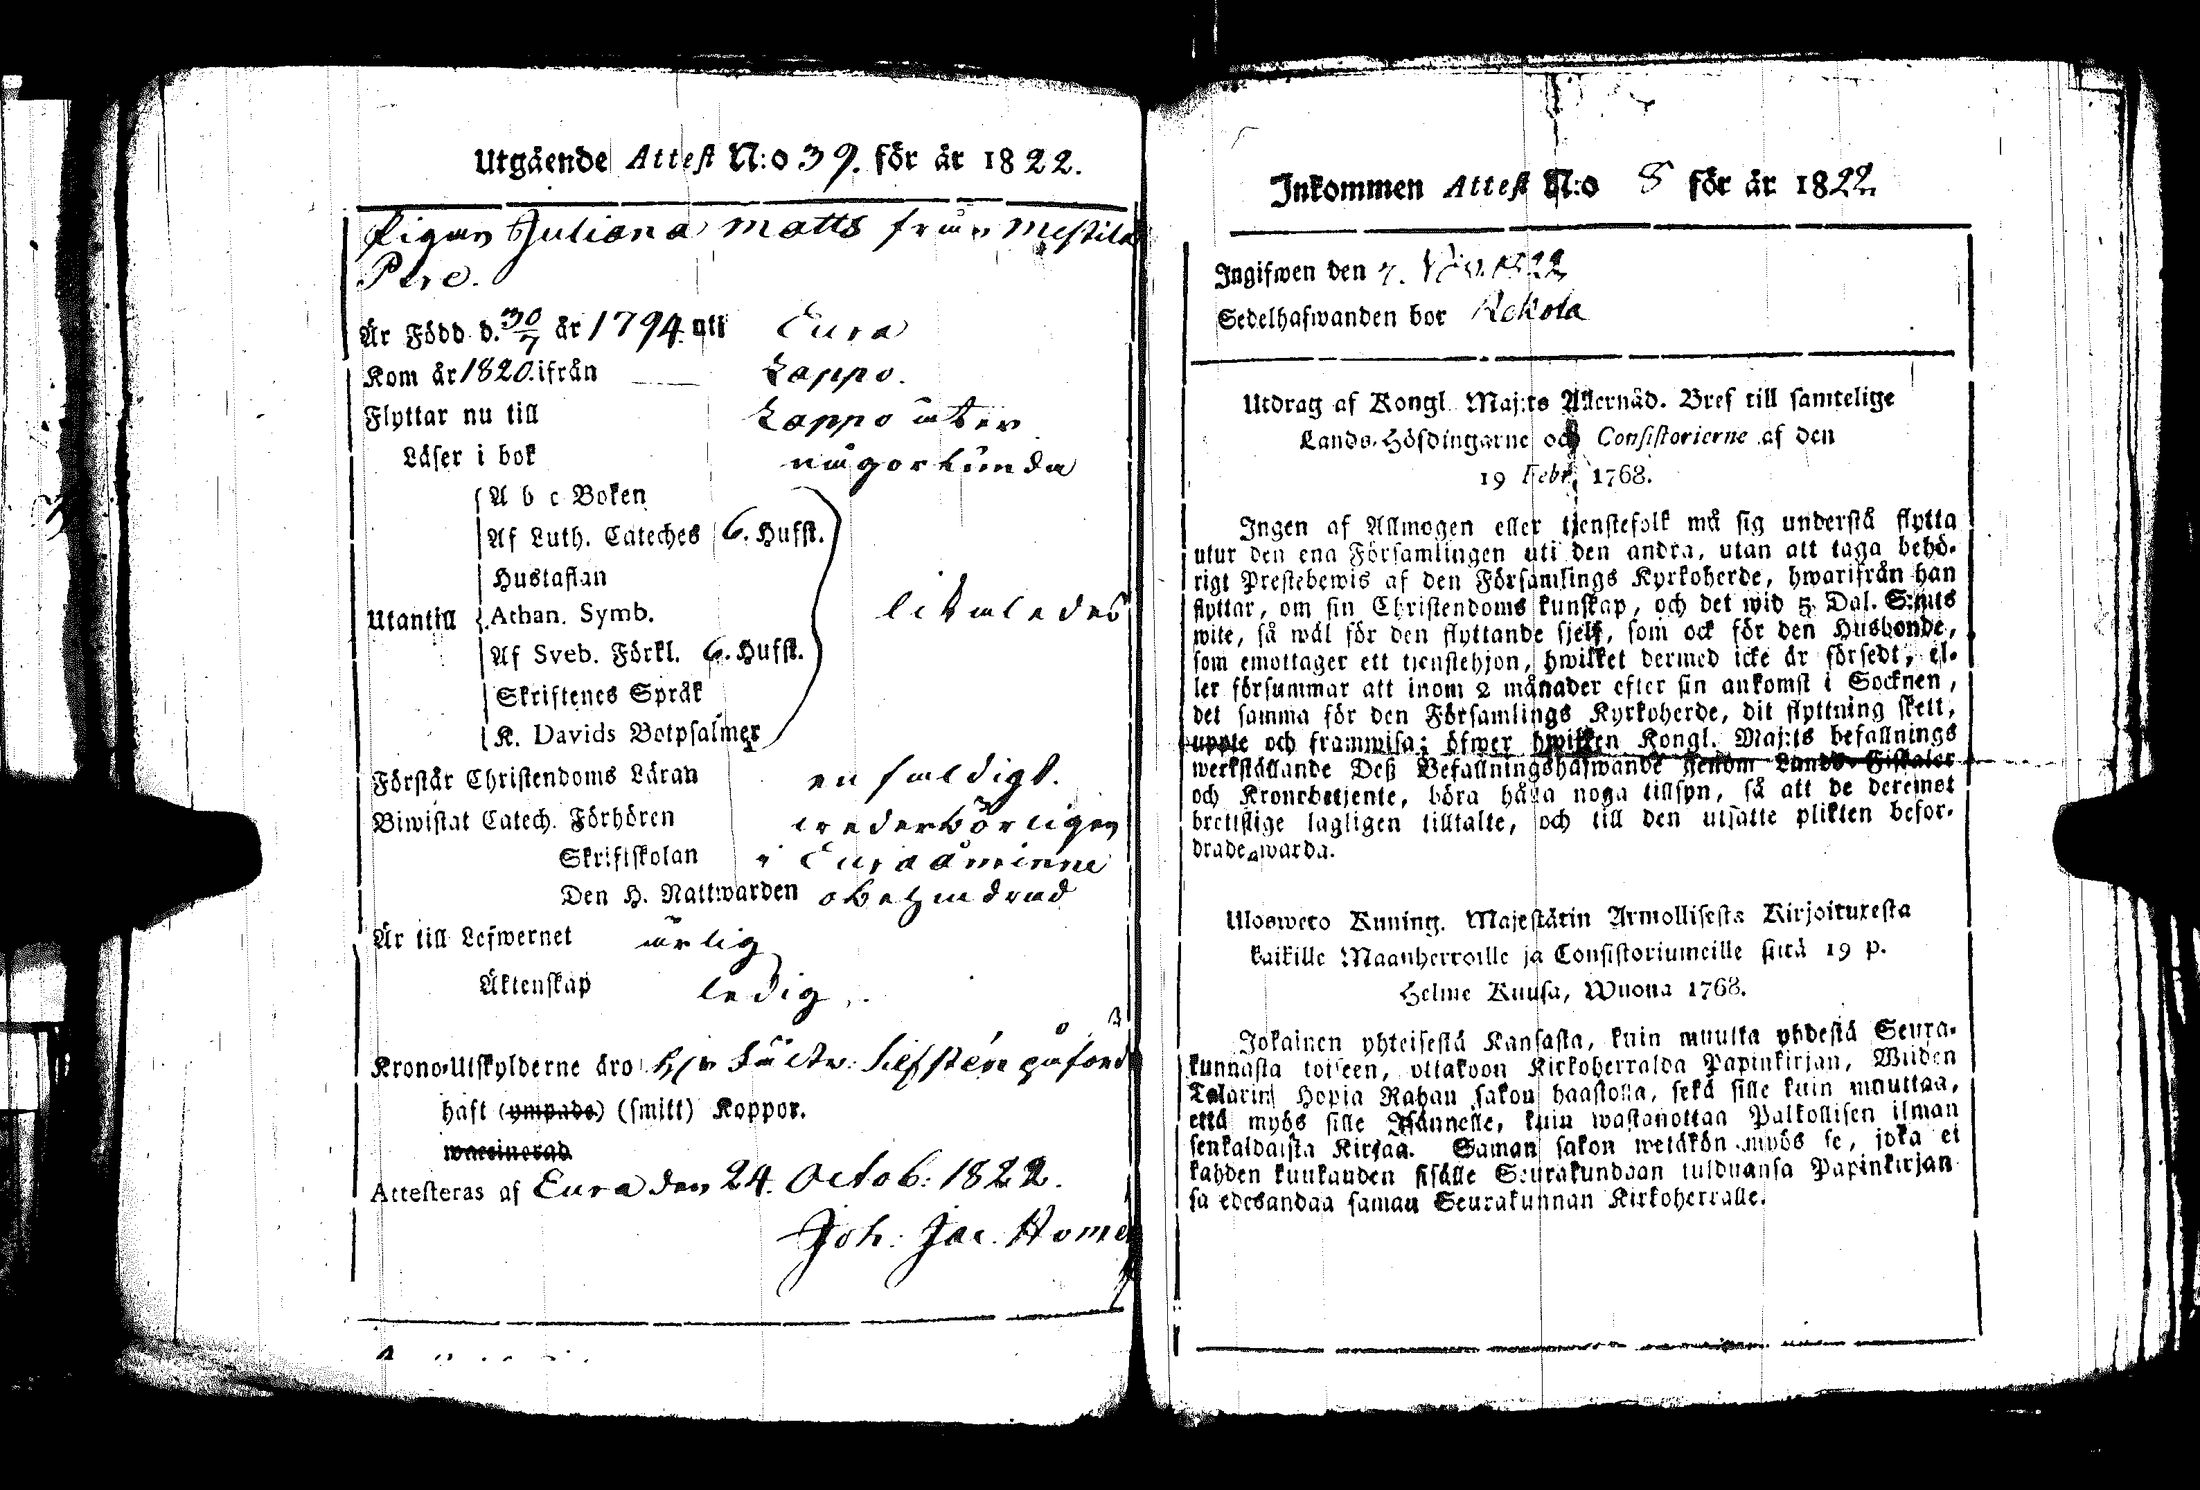 Utgående Attest N:o 39. för år 1822.
Pigan Juliana Matts från Mestilä
Är Född d. 30/7 år 1794. uti Eura
Kom år 1820. ifrån Lappo.
Flyttar nu till Lappo åter
Läser i bok någorlunda
A b c Boken
Af Luth. Cateches 6. Hufst.
Hustaflan
Utantill Athan. Symb. likaledes
Af Sveb. Förkl. 6. Hufst.
Skriftenes Språk
K. Davids Botpsalmer
Förstår Christendoms Läran enfaldigt.
Biwistat Catech. Förhören wederbörligen
Skriftskolan i Eura åminne
Den H. Nattwarden obehindrad
Är till Lefwernet ärlig
Äktenskap ledig
Krono-Utskylderne äro
haft (ympade) (smitt) Koppor.
waccinerad
Attesteras af Eura den 24. Octob: 1822.
Joh. Jac.
Inkommen Attest N:o 8 för år 1822.
Ingifwen den 7. Nov. 1822
Sedelhafwanden bor Kekola
Utdrag af Kongl. Maj:ts Allernåd. Bref till samtelige
Lands-Höfdingarne och Consistorierne af den
19 Febr. 1768.
Ingen af Allmogen eller tjenstefolk må sig understå flytta
utur den ena Församlingen uti den andra, utan att taga behö-
rigt Prestebewis af den Församlings Kyrkoherde, hwarifrån han
flyttar, om sin Christendoms kunskap, och det wid 5 Dal. S:mts
wite, så wäl för den flyttande sjelf, som ock för den Husbonde,
som emottager ett tjenstehjon, hwilket dermed icke är försedt, el-
ler försummar att inom 2 månader efter sin ankomst i Socknen,
det samma för den Församlings Kyrkoherde, dit flyttning skett,
upple och framwisa; öfwer hwilken Kongl. Maj:ts befallnings
werkställande Deß Befallningshafwande genom Lands-Fiskaler
och Kronobetjente, böra hafwa noga tillsyn, så att de deremot
brottslige lagligen tilltalte, och till den utsatte plikten befor-
drade warda.
Uloswetо Kuning. Majestätin Armollisesta Kirjoituxesta
kaikille Maanherroille ja Consistoriumeille siitä 19 p.
Helme Kuusa, Wuona 1768.
Jokainen yhteisestä Kansasta, kuin muutta yhdestä Seura-
kunnasta toiseen, ottakoon Kirkoherralda Papinkirjan, Wiiden
Talarin Hopia Rahan sakon haastolla, sekä sille kuin muuttaa,
että myös sille Isännelle, kuin wastanottaa Palkollisen ilman
senkaldaista Kirjaa. Saman sakon wetäkön myös se, joka ei
kahden kuukauden sisälle Seurakundaan tulduansa Papinkirjan-
sa edesandaa saman Seurakunnan Kirkoherralle.